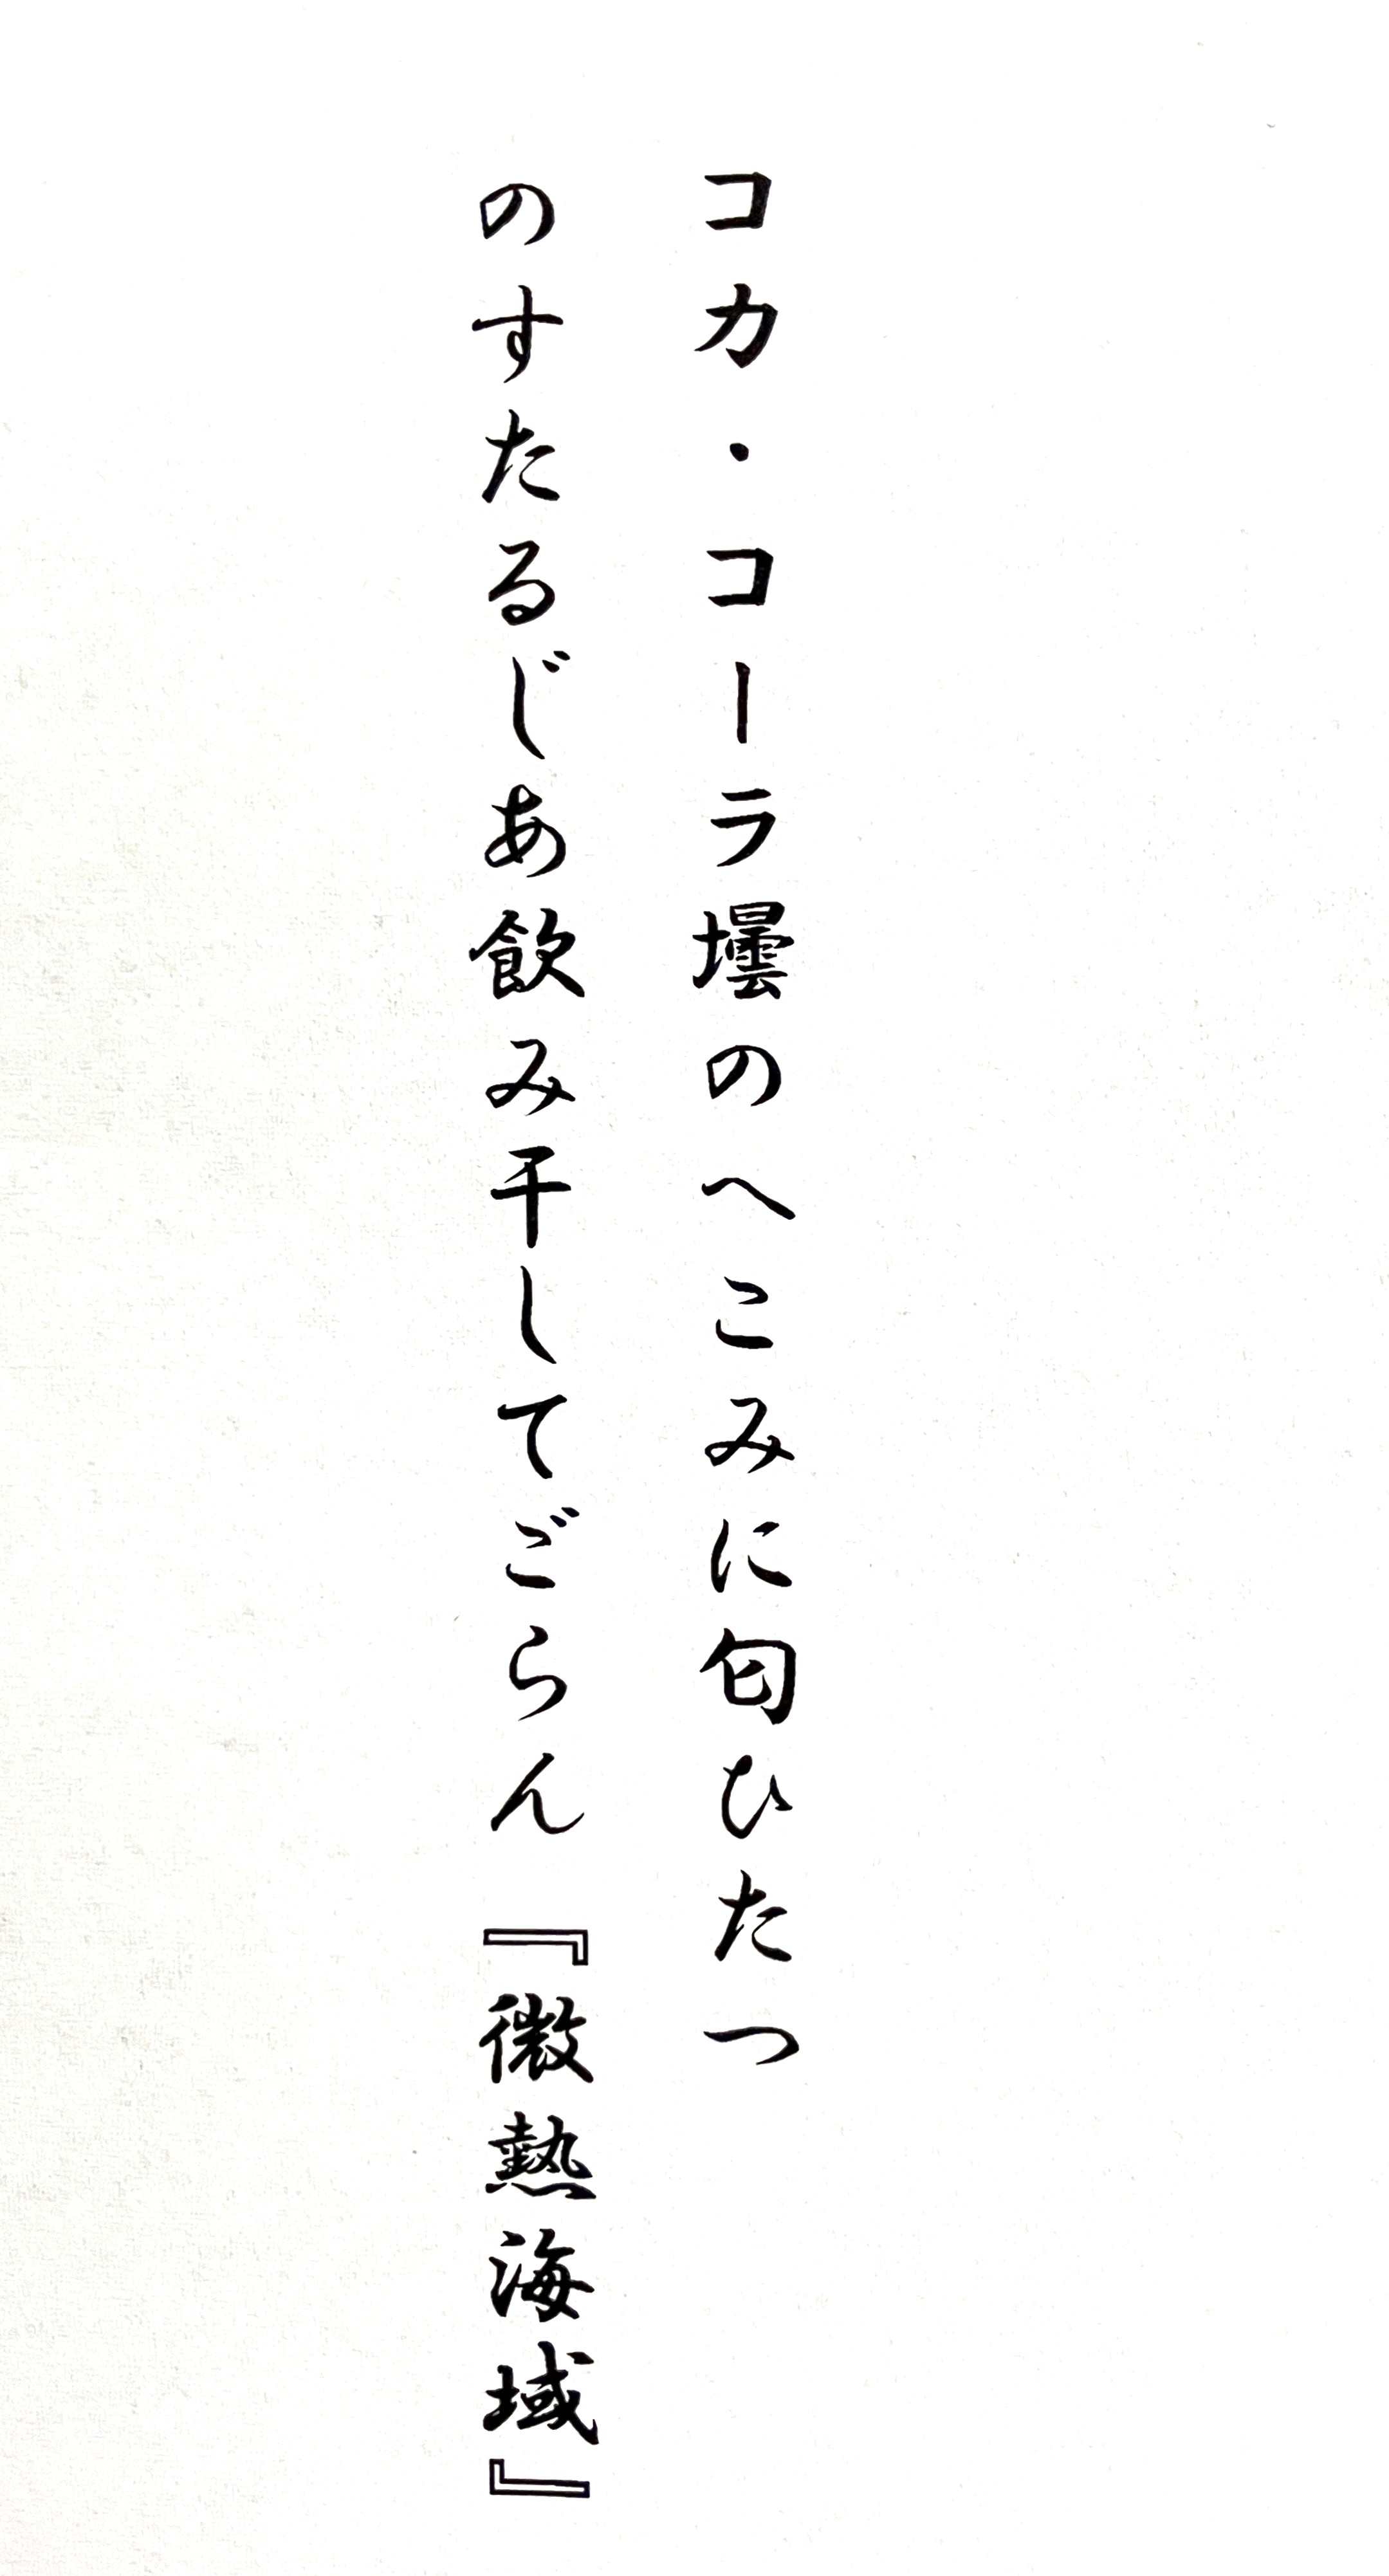 コカ・コーラ壜のへこみに匂ひたつ
のすたるじあ飲み干してごらん『微熱海域』